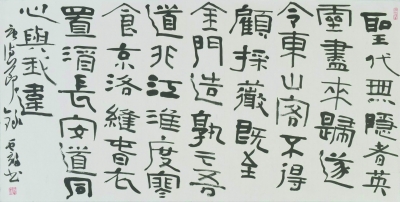 聖代無隱者英
靈盡來歸遂
令東山客不得
顧採薇既至
金門遠孰云吾
道非江淮度寒
食京洛縫春衣
置酒長安道同
心與我違